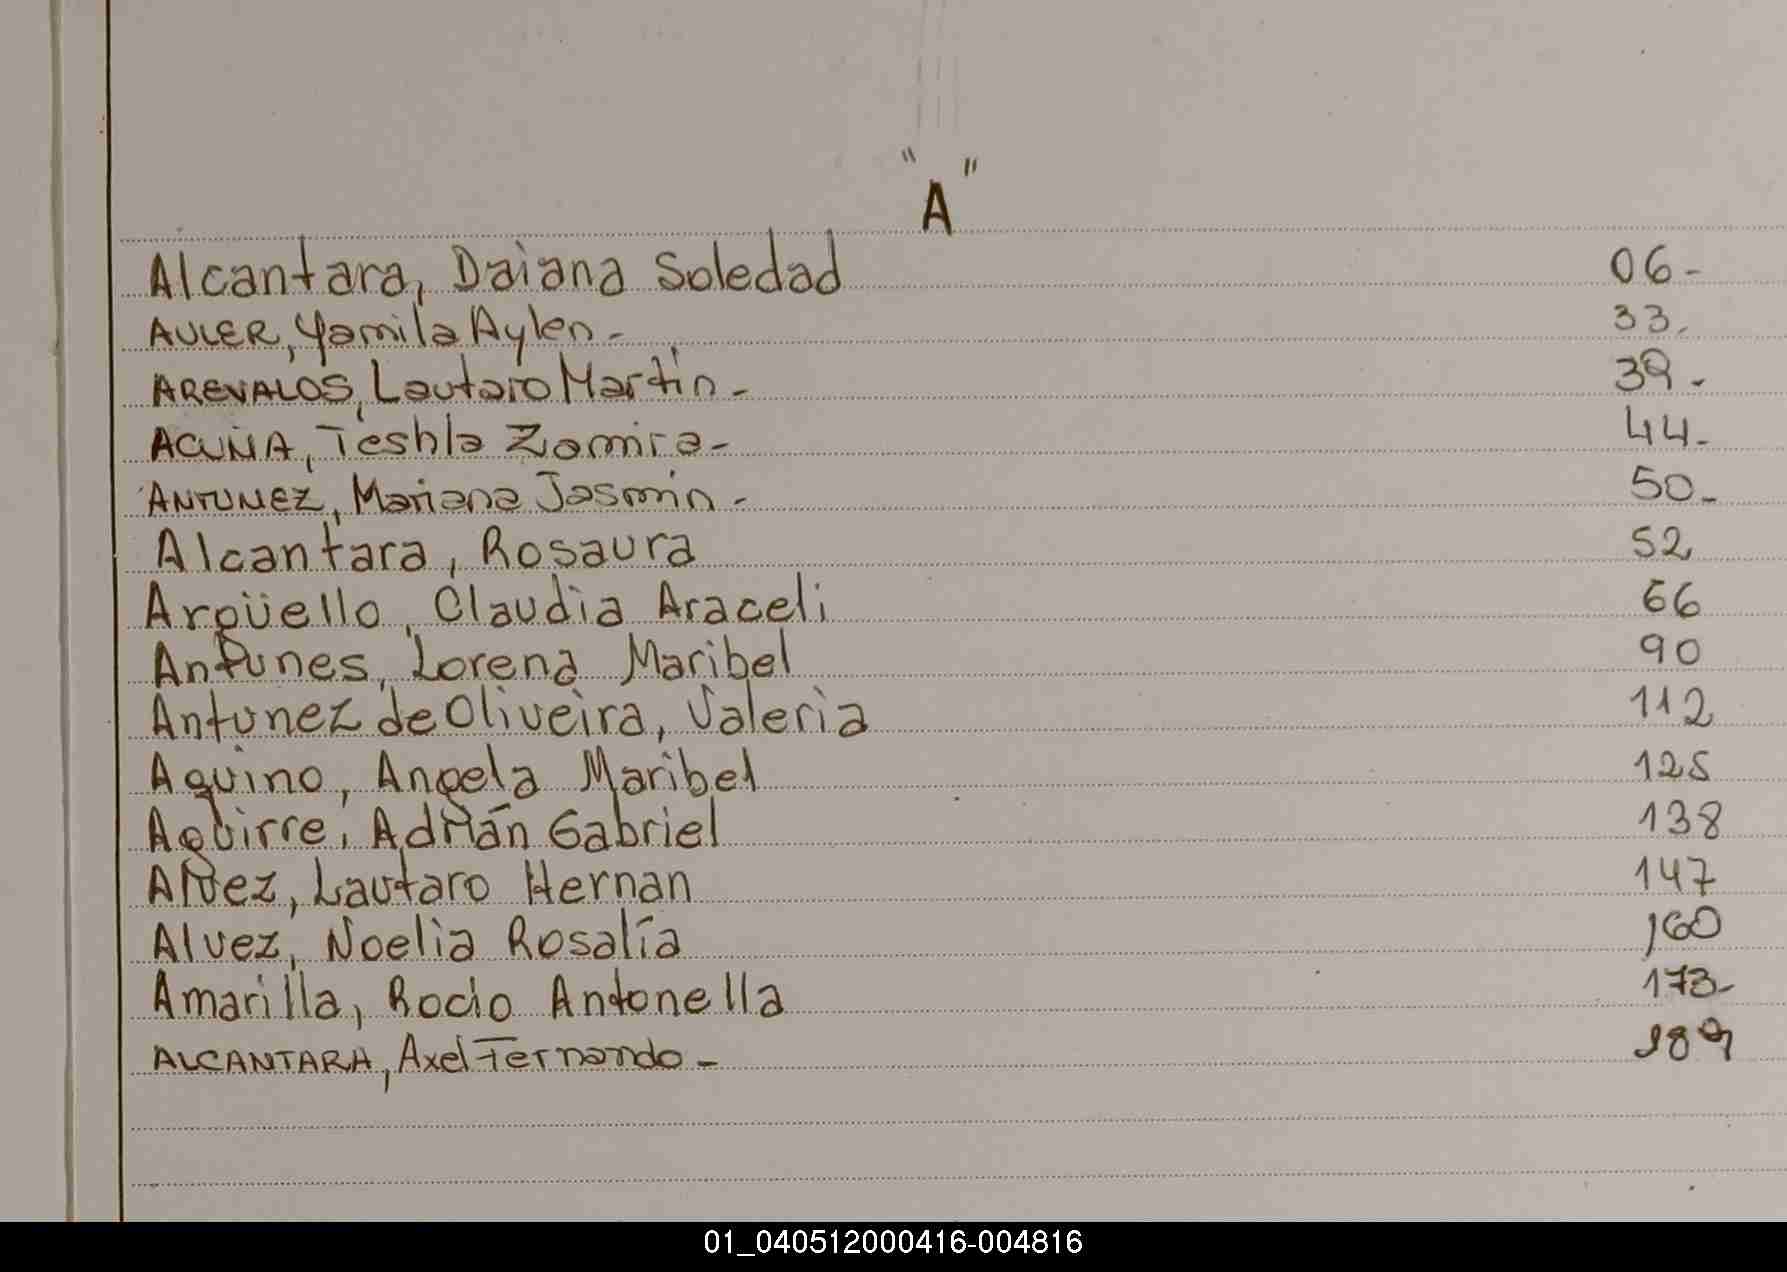 "A"
Alcantara, Daiana Soledad 06-
AULER, Yamila Aylen- 33.
AREVALOS, Lautaro Martin- 39-
ACUÑA, Teshla Zamira- 44-
ANTUNEZ, Mariana Jasmin- 50-
Alcantara, Rosaura 52
Argüello, Claudia Araceli 66
Antunes, Lorena Maribel 90
Antunez de Oliveira, Valeria 112
Aquino, Angela Maribel 125
Aguirre, Adrián Gabriel 138
Alvez, Lautaro Hernan 147
Alvez, Noelia Rosalía 160
Amarilla, Rocio Antonella 173-
ALCANTARA, Axel Fernando- 189
01_040512000416-004816